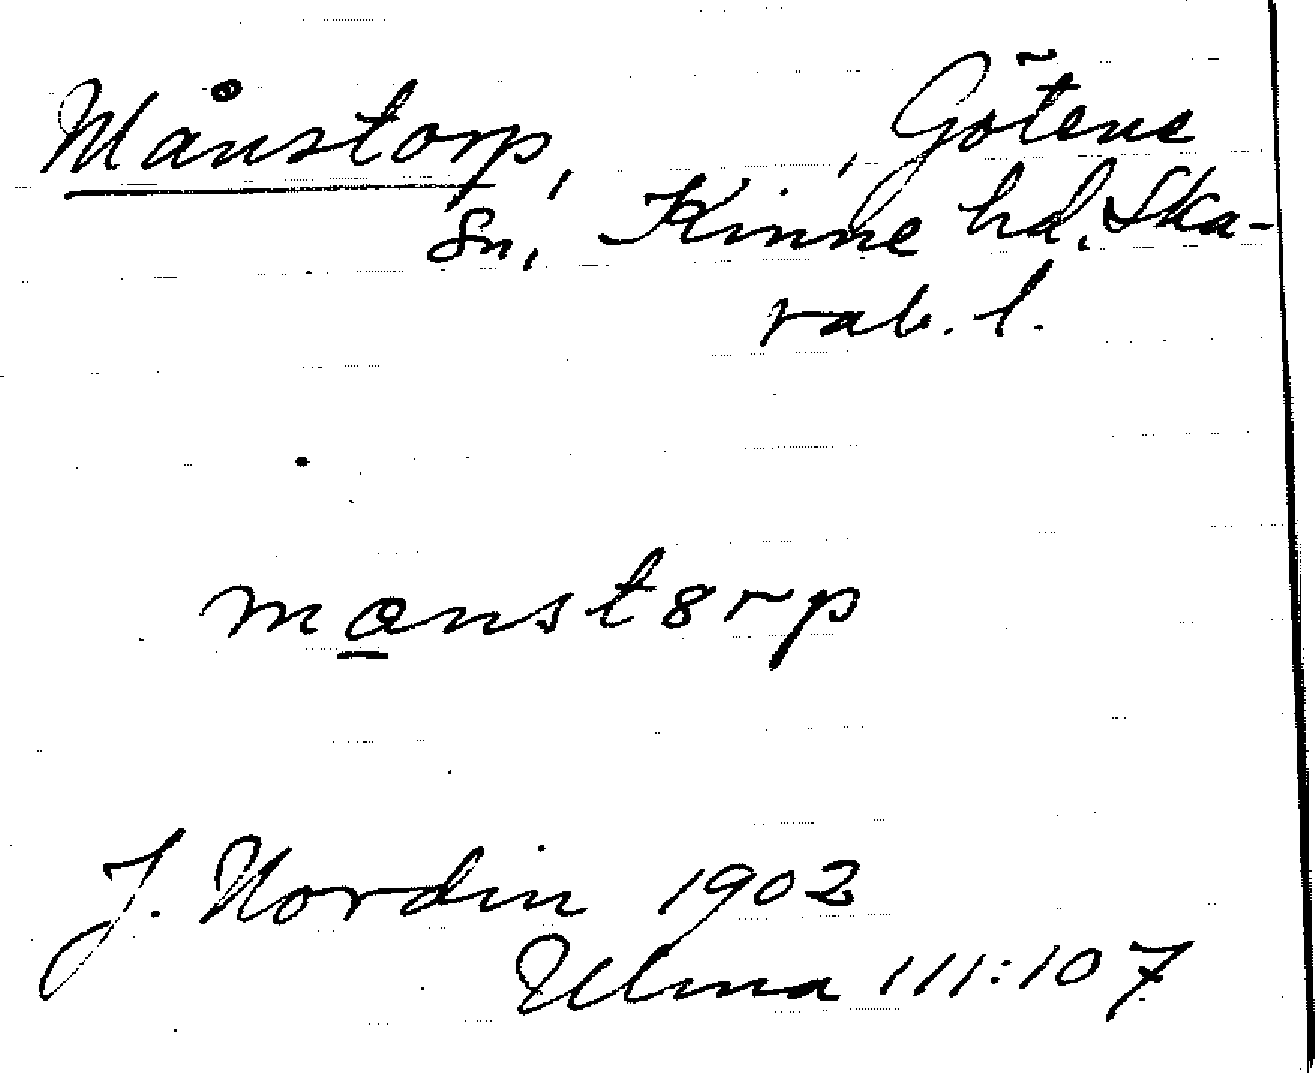 Månstorp, , Götene
sn, Kinne hd. Ska-
rab. l.
mɑnstȣrp
J. Nordin 1902
Ulma 111:107